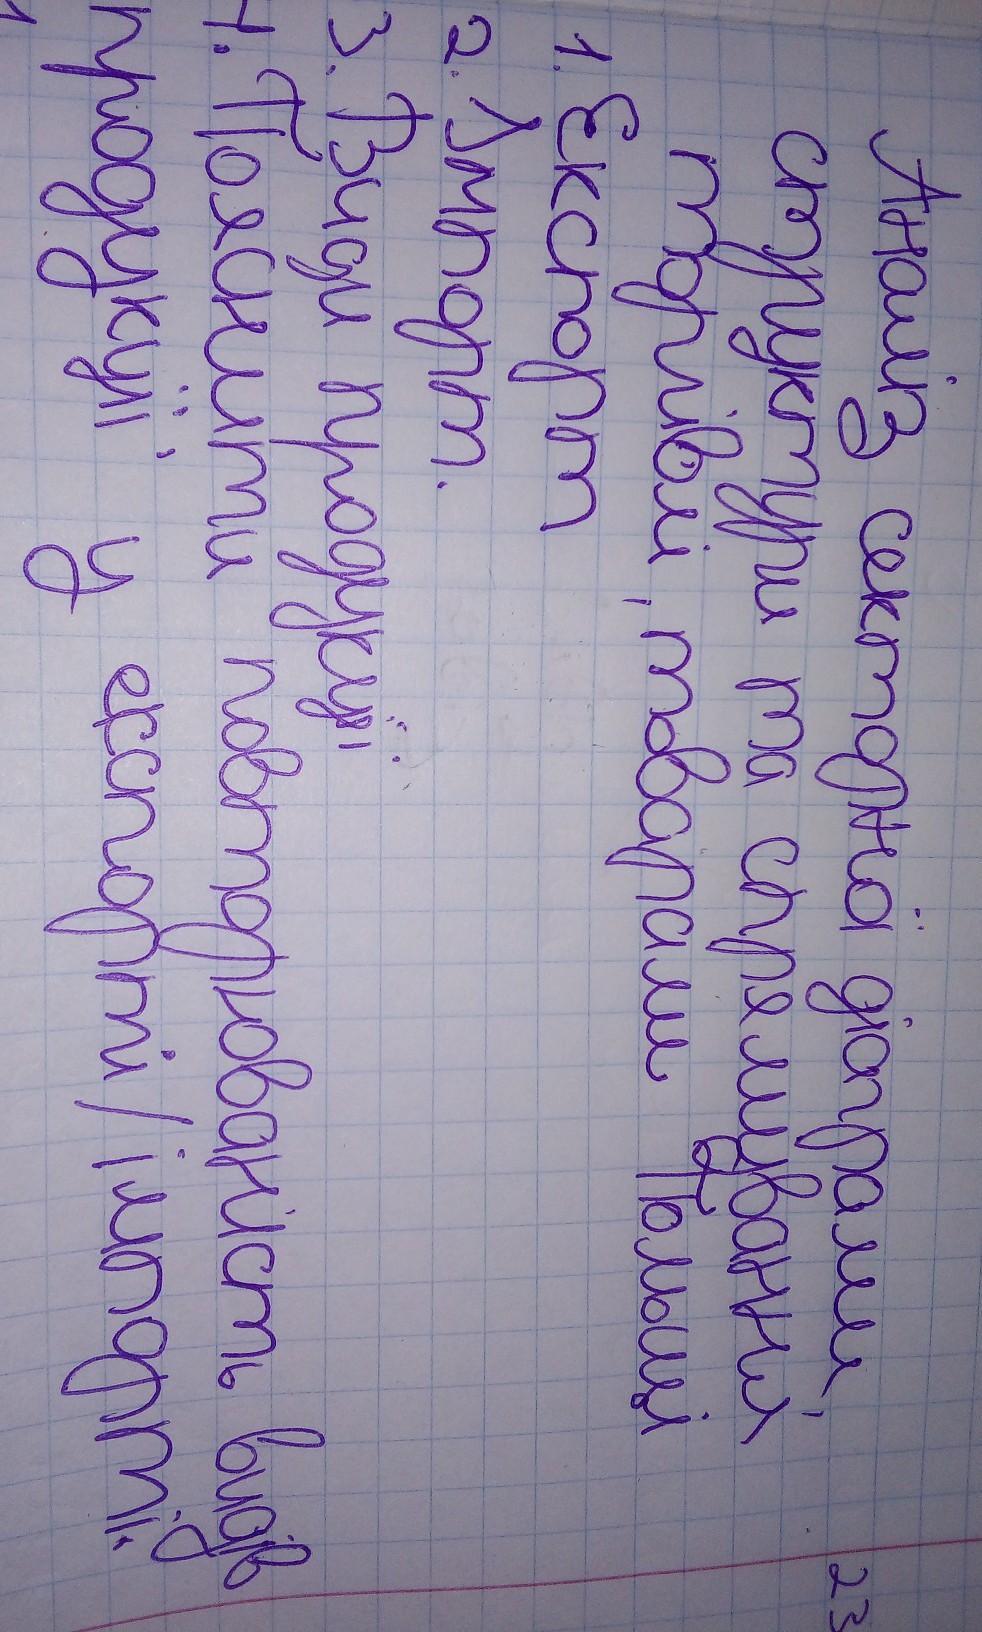 Аналіз секторної діаграми, 23
структури та спрямуванні
торгівлі, товарами Польщі
1. Експорт
2. Імпорт.
3. Види продукції.
4. Пояснити повторюваність видів
продукції, у експорті/імпорті.